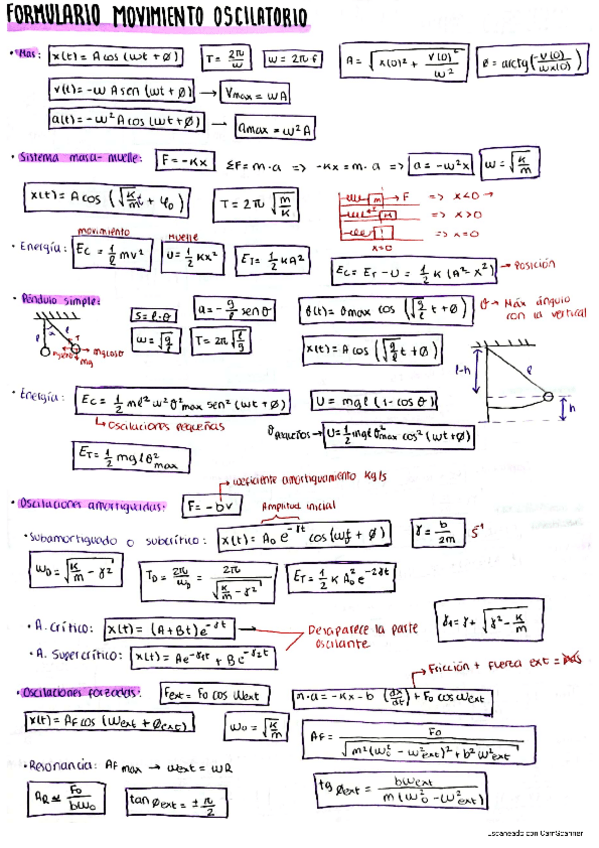 FORMULARIO MOVIMIENTO OSCILATORIO
• Mas: x(t) = A cos (ωt + ø) T = 2π/ω ω = 2π f A = √(x(0)² + v(0)²/ω²) ø = arctg(v(0)/ωx(0))
v(t) = -ω A sen (ωt + ø) → Vmax = ωA
a(t) = -ω² A cos (ωt + ø) → amax = ω²A
• Sistema masa-muelle: F = -Kx ΣF = m·a => -Kx = m·a => a = -ω²x ω = √(K/m)
x(t) = A cos (√(K/m) t + φ₀) T = 2π √(m/K)
m → F => x<0 →
m => x>0
=> x=0
x=0
movimiento muelle
• Energía: Ec = 1/2 mv² U = 1/2 Kx² ET = 1/2 KA²
Ec = ET - U = 1/2 K (A² - X²) → Posición
• Péndulo simple: s = l·θ a = -g/l sen θ θ(t) = θmax cos (√(g/l) t + ø) θ → Máx ángulo con la vertical
ω = √(g/l) T = 2π √(l/g)
x(t) = A cos (√(g/l) t + ø)
l l T
mg cosθ
mg
l-h l
h
• Energía: Ec = 1/2 ml² ω² θ²max sen² (ωt + ø) U = mgl (1 - cos θ)
↳ Oscilaciones pequeñas θ pequeños → U = 1/2 mgl θ²max cos² (ωt + ø)
ET = 1/2 mgl θ²max
→ coeficiente amortiguamiento Kg/s
• Oscilaciones amortiguadas: F = -bv Amplitud inicial
• Subamortiguado o subcrítico: x(t) = A₀ e^-γt cos (ωt + ø) γ = b/2m s⁻¹
ωD = √(K/m - γ²) TD = 2π/ωD = 2π/√(K/m - γ²) ET = 1/2 K A₀² e^-2γt
• A. Crítico: x(t) = (A + Bt) e^-γt → Desaparece la parte oscilante γ₁ = γ + √(γ² - K/m)
• A. Supercrítico: x(t) = Ae^-γ₁t + Be^-γ₂t
→ Fricción + fuerza ext =
• Oscilaciones forzadas: Fext = F₀ cos ωext m·a = -Kx - b (dx/dt) + F₀ cos ωext
x(t) = AF cos (ωext + øext) ω₀ = √(K/m) AF = F₀/√(m²(ω₀² - ω²ext)² + b²ω²ext)
• Resonancia: AF max → ωext = ωR
AR ≃ F₀/bω₀ tan øext = ± π/2 tg øext = bωext/m(ω₀² - ω²ext)
Escaneado con CamScanner